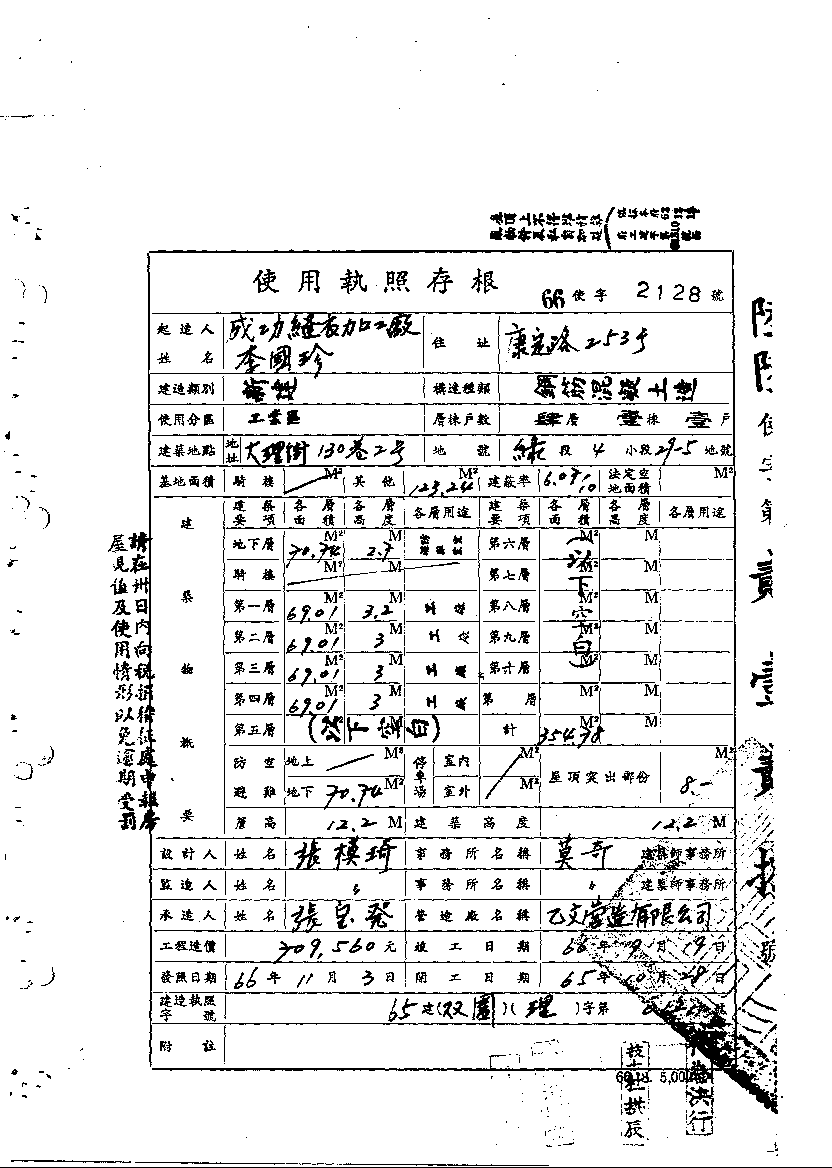 使用執照存根
66使字 2128號
起造人姓名 成功縫衣加工廠 李國珍 住址 康定路253号
建造類別 新建 構造種類 鋼筋混凝土造
使用分區 工業區 層棟戶數 肆層 壹棟 壹戶
建築地點 地址 大理街130巷2号 地號 綠段 4 小段29-5地號
基地面積 騎樓 M² 其他 123.24 M² 建蔽率 法定空地面積 M²
建築物概要
建築要項 各層面積 各層高度 各層用途 建築要項 各層面積 各層高度 各層用途
地下層 70.74 M² 2.7 M 第六層 M² M
騎樓 M² M 第七層 M² M
第一層 69.01 M² 3.2 M 第八層 M² M
第二層 69.01 M² 3 M 第九層 M² M
第三層 69.01 M² 3 M 第十層 M² M
第四層 69.01 M² 3 M 第 層 M² M
第五層 (以下空白) 計 354.78
(以下空白)
防空避難 地上 M² 停車場 室內 M² 屋頂突出部份 8.- M²
地下 70.74 M² 室外 M²
層高 12.2 M 建築高度 12.2 M
設計人 姓名 張模琦 事務所名稱 莫奇 建築師事務所
監造人 姓名 〃 事務所名稱 〃 建築師事務所
承造人 姓名 張皇發 營造廠名稱 乙文營造有限公司
工程造價 709,560元 竣工日期 66年9月19日
發照日期 66年11月3日 開工日期 65年10月28日
建造執照字號 65建(双園)(理)字第 號
附註
請在卅日內向稅捐稽征處申報房
屋見值及使用情形以免逾期受罰
技士杜拱辰
決行